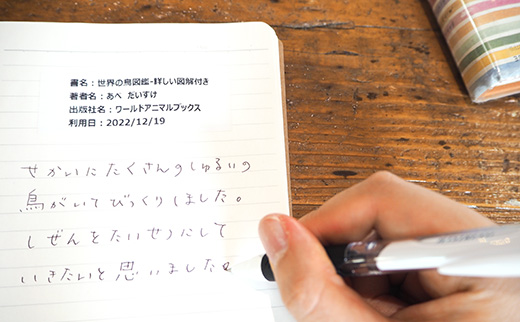 書名：世界の鳥図鑑-詳しい図解付き
著者名：あべ だいすけ
出版社名：ワールドアニマルブックス
利用日：2022/12/19
せかいにたくさんのしゅるいの
鳥がいてびっくりしました。
しぜんをたいせつにして
いきたいと思いました